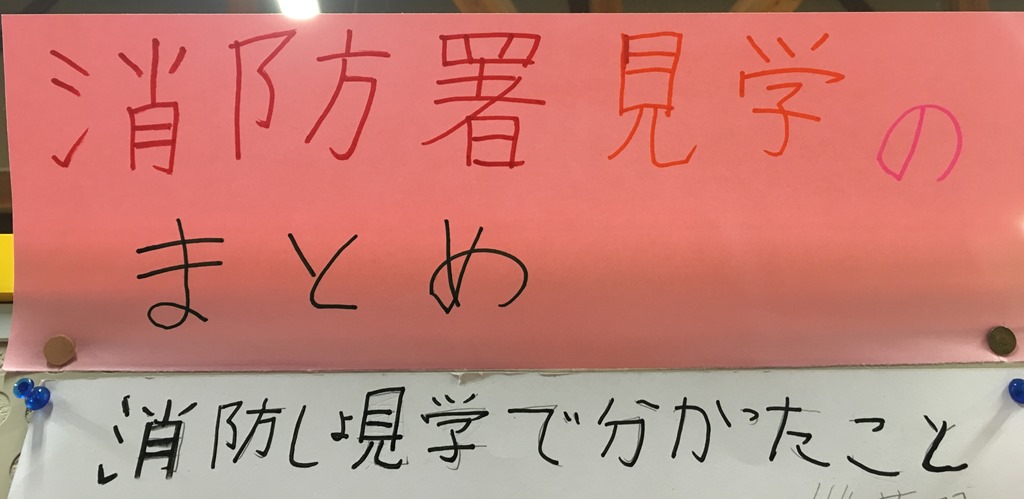 消防署見学の
まとめ
消防しょ見学で分かったこと